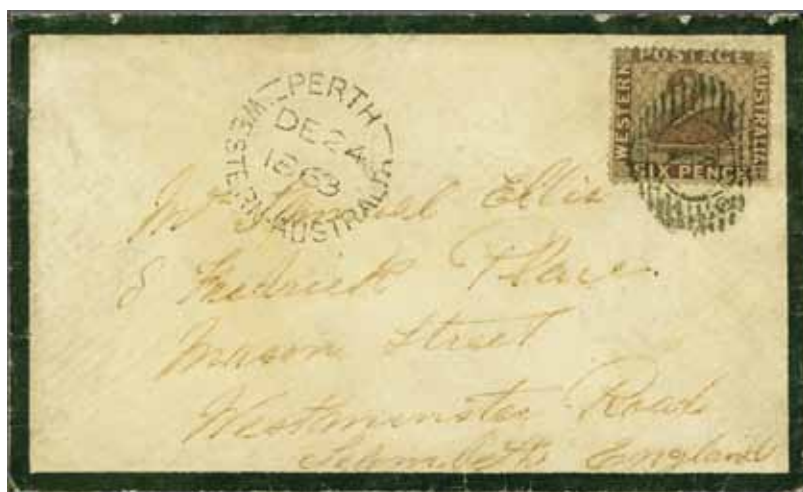 PERTH
WESTERN AUSTRALIA
DE 24
1863
POSTAGE
WESTERN
AUSTRALIA
SIX PENCE
Mr Samuel Ellis
8 Fredrick Place
Mason Street
Westminster Road
England